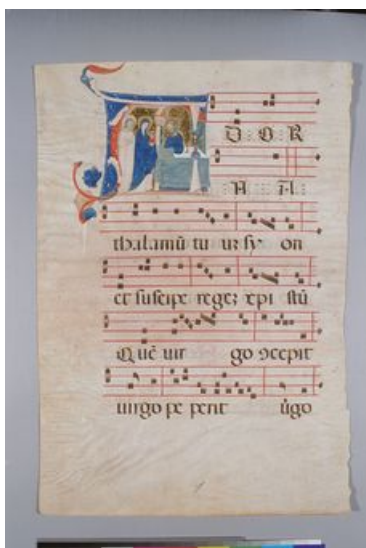 A D O R
N A
thalamū tu uz sy on
et suscipe regez xpi stū
Quē uir go ↄcepit
uirgo pe perit ūgo